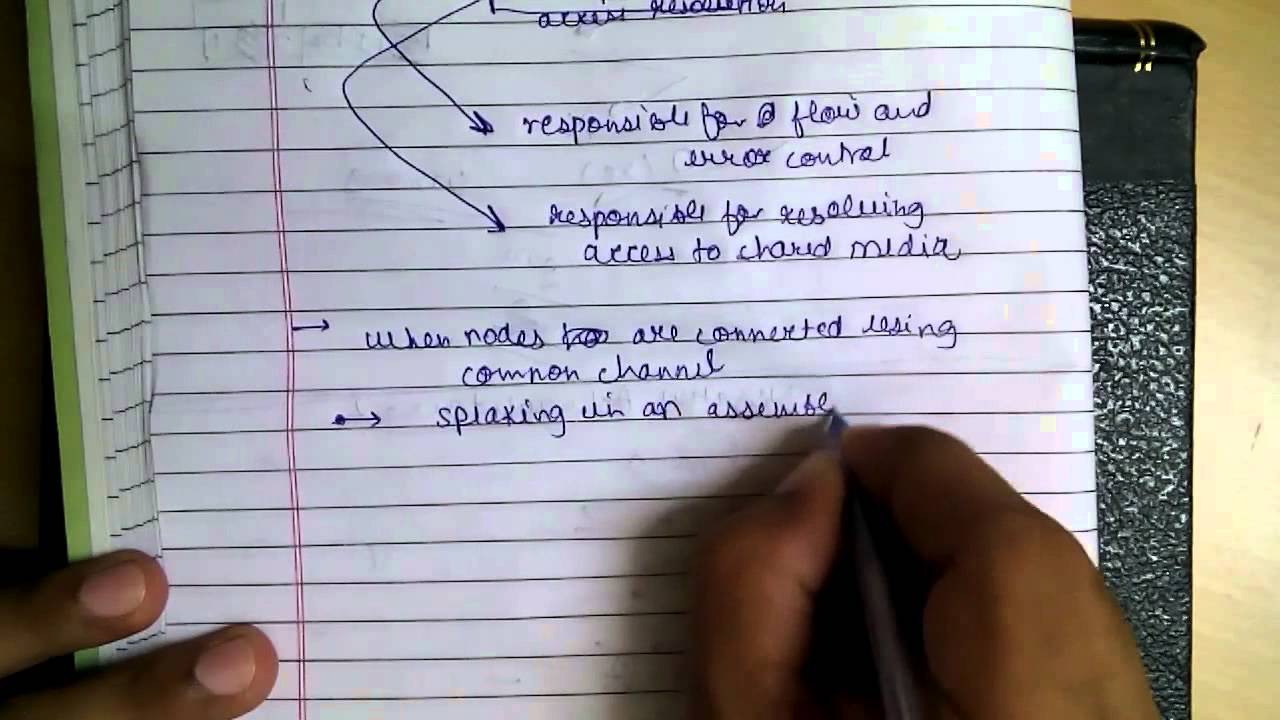 access resolution
responsible for flow and
error control
responsible for resolving
access to chared media
→ when nodes are connected using
common channel
→ speaking in an assemble